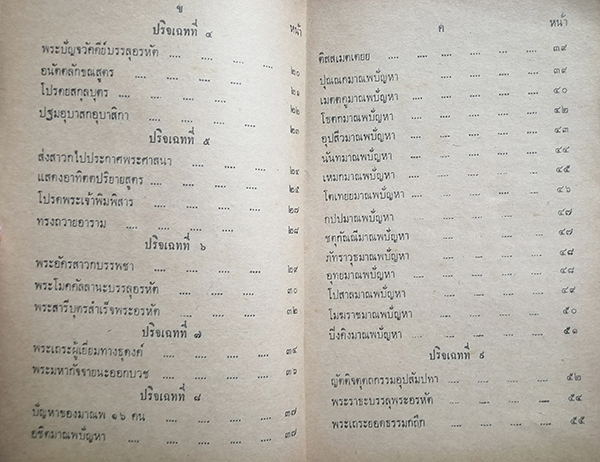 ข
ปริจเฉทที่ ๔ หน้า
พระบัญจวัคคีย์บรรลุอรหัต .... .... .... ๒๐
อนัตตลักขณสูตร .... .... .... .... ๒๑
โปรดยสกุลบุตร .... .... .... .... ๒๒
ปฐมอุบาสกอุบาสิกา .... .... .... ๒๓
ปริจเฉทที่ ๕
ส่งสาวกไปประกาศพระศาสนา .... .... .... ๒๔
แสดงอาทิตตปริยายสูตร .... .... .... ๒๕
โปรดพระเจ้าพิมพิสาร .... .... .... ๒๗
ทรงถวายอาราม .... .... .... .... ๒๘
ปริจเฉทที่ ๖
พระอัครสาวกบรรพชา .... .... .... ๒๙
พระโมคคัลลานะบรรลุอรหัต .... .... .... ๓๐
พระสารีบุตรสำเร็จพระอรหัต .... .... .... ๓๒
ปริจเฉทที่ ๗
พระเถระผู้เยี่ยมทางธุดงค์ .... .... .... ๓๔
พระมหากัจจายนะออกบวช .... .... .... ๓๖
ปริจเฉทที่ ๘
ปัญหาของมาณพ ๑๖ คน .... .... .... ๓๗
อชิตมาณพปัญหา .... .... .... ๓๗
ค หน้า
ติสสเมตเตยย .... .... .... .... ๓๙
ปุณณกมาณพปัญหา .... .... .... ๓๙
เมตตคูมาณพปัญหา .... .... .... ๔๐
โธตกมาณพปัญหา .... .... .... ๔๒
อุปสีวมาณพปัญหา .... .... .... ๔๓
นันทมาณพปัญหา .... .... .... ๔๔
เหมกมาณพปัญหา .... .... .... ๔๕
โตเทยยมาณพปัญหา .... .... .... ๔๖
กปปมาณพปัญหา .... .... .... ๔๗
ชตุกัณณีมาณพปัญหา .... .... .... ๔๗
ภัทราวุธมาณพปัญหา .... .... .... ๔๘
อุทยมาณพปัญหา .... .... .... ๔๘
โปสาลมาณพปัญหา .... .... .... ๔๙
โมฆราชมาณพปัญหา .... .... .... ๕๐
ปิงคิงมาณพปัญหา .... .... .... ๕๑
ปริจเฉทที่ ๙
ญัตติจตุตถกรรมอุปสัมปทา .... .... .... ๕๒
พระราธะบรรลุพระอรหัต .... .... .... ๕๔
พระเถระยอดธรรมกถึก .... .... .... ๕๕